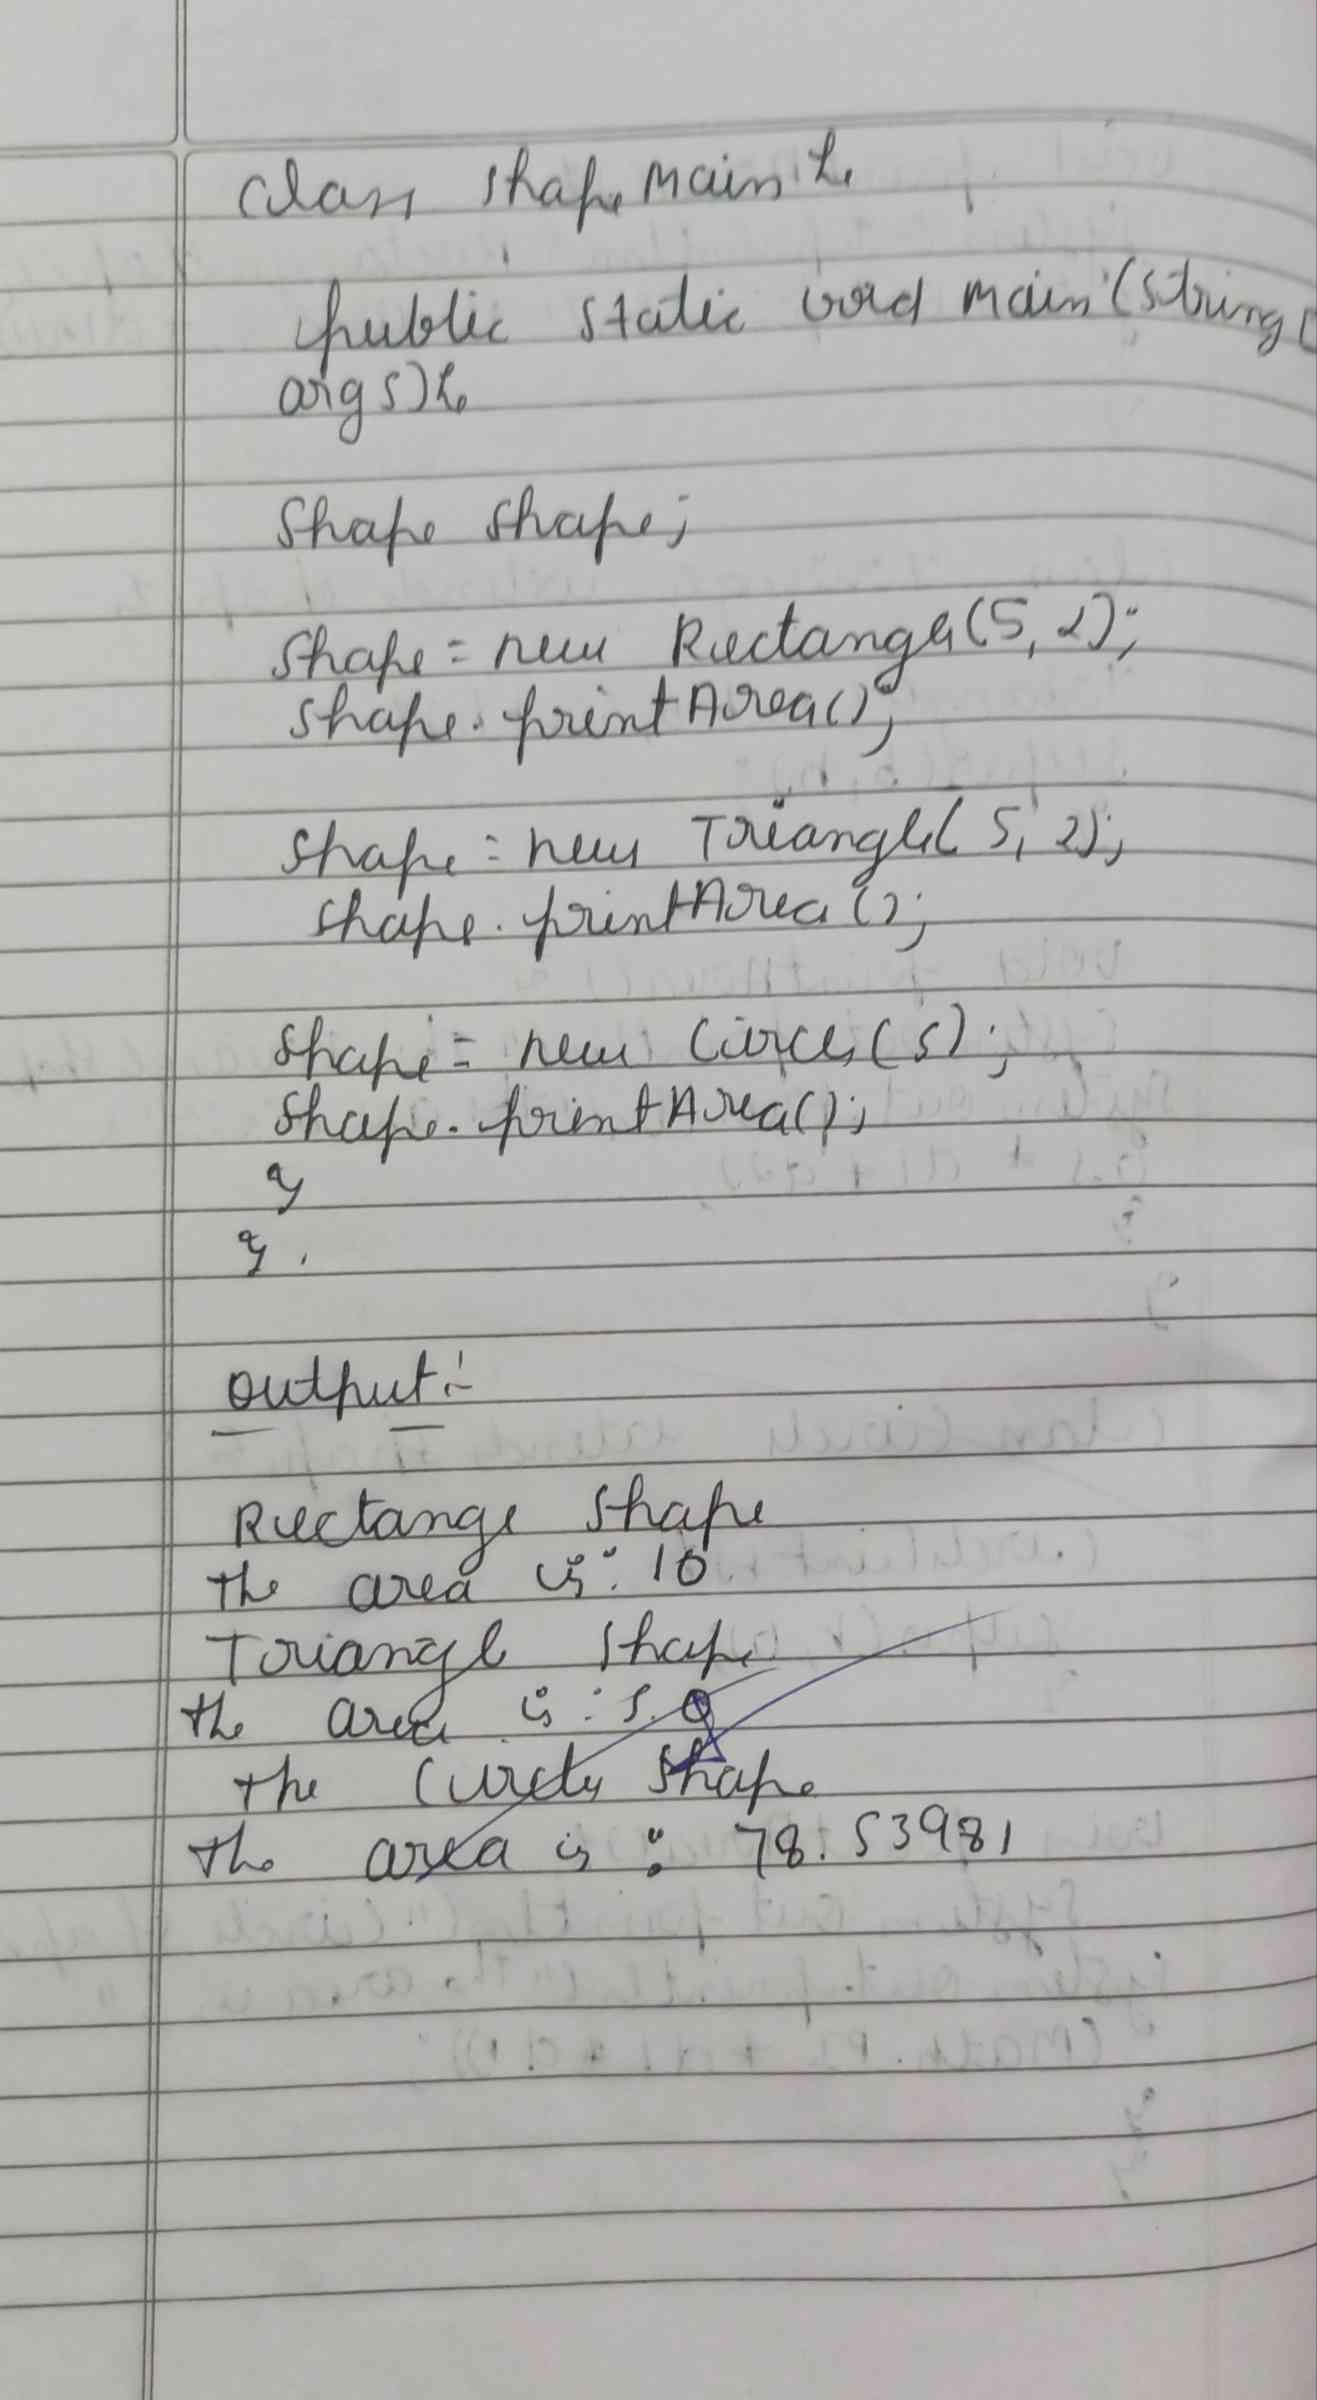 class shape main {
public static void main (string [
args) {
Shape shape;
Shape = new Rectangle (5, 2);
shape. printArea();
shape = new Triangle( 5, 2);
shape. printArea ();
shape = new Circle (5);
shape. printArea();
}
}.
output:-
Rectange shape
the area is: 10
Triangle shape
the area is : 5.0
the Circle shape
the area is : 78.53981